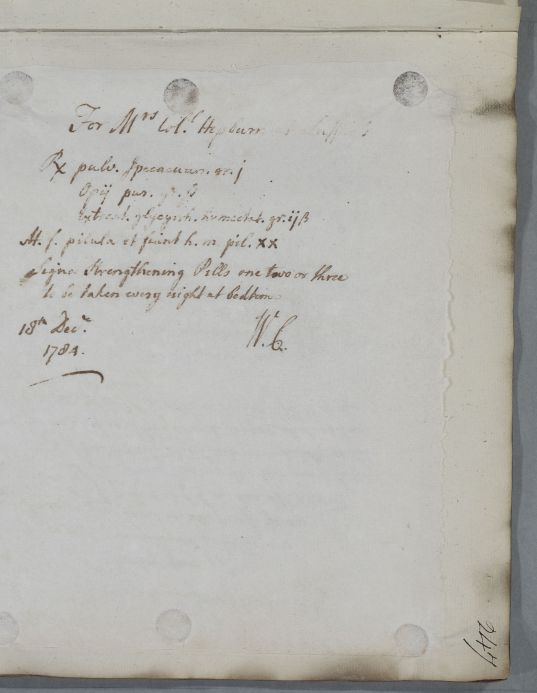 For Mrs Coll. Hepburn
Rx pulv. Ipecacuan. gr. j
Opij pur. gr. ß
Extract. glycyrrh. humectat. gr. ijß
M. f. pilula et fiant h. m. pil. xx
Signa Strengthening Pills one two or three
to be taken every night at bedtime
18th Decr.
1784.
W. C.